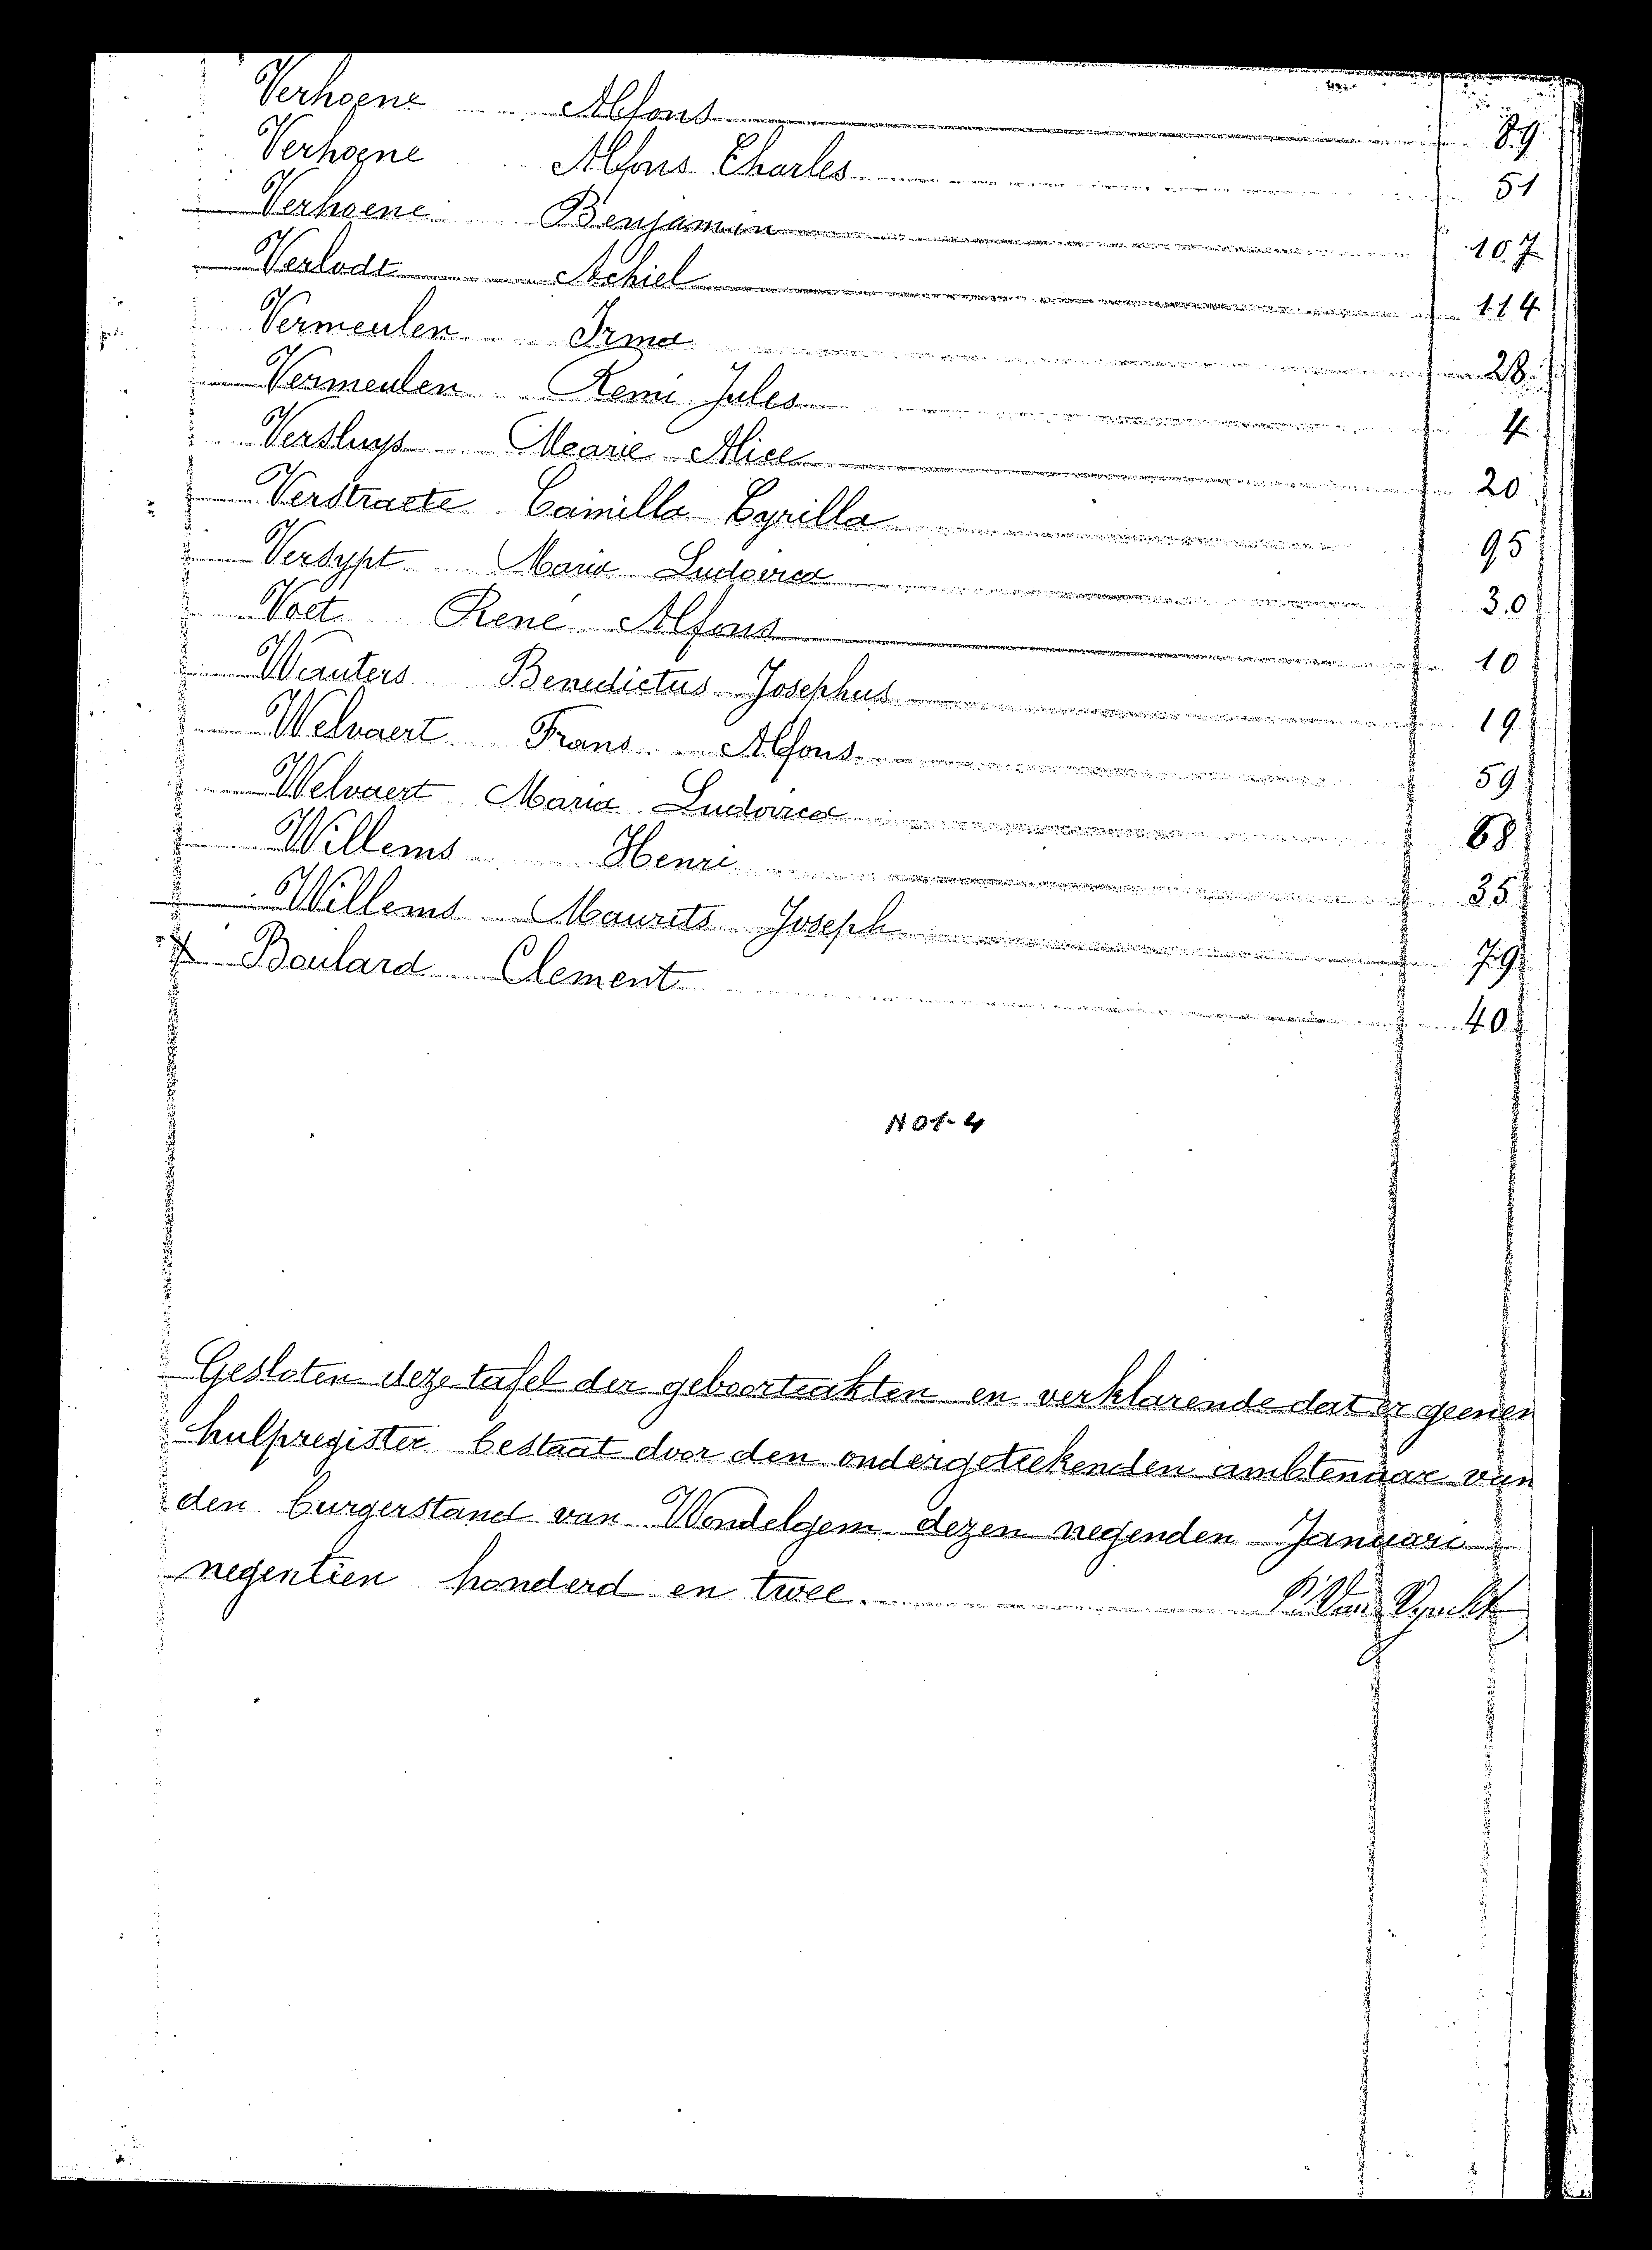 Verhoene Alfons 89
Verhoene Alfons Charles 51
Verhoene Benjamin 107
Verlodt Achiel 114
Vermeulen Irma 28
Vermeulen Remi Jules 4
Versluys Marie Alice 20
Verstraete Camilla Cyrilla 95
Versypt Maria Ludovica 30
Voet René Alfons 10
Wauters Benedictus Josephus 19
Welvaert Frans Alfons 59
Welvaert Maria Ludovica 68
Willems Henri 35
Willems Maurits Joseph 79
Boulard Clement 40
N01-4
Gesloten deze tafel der geboorteakten en verklarende dat er geenen
hulpregister bestaat door den ondergeteekenden ambtenaar van
den burgerstand van Wondelgem dezen negenden Januari
negentien honderd en twee.